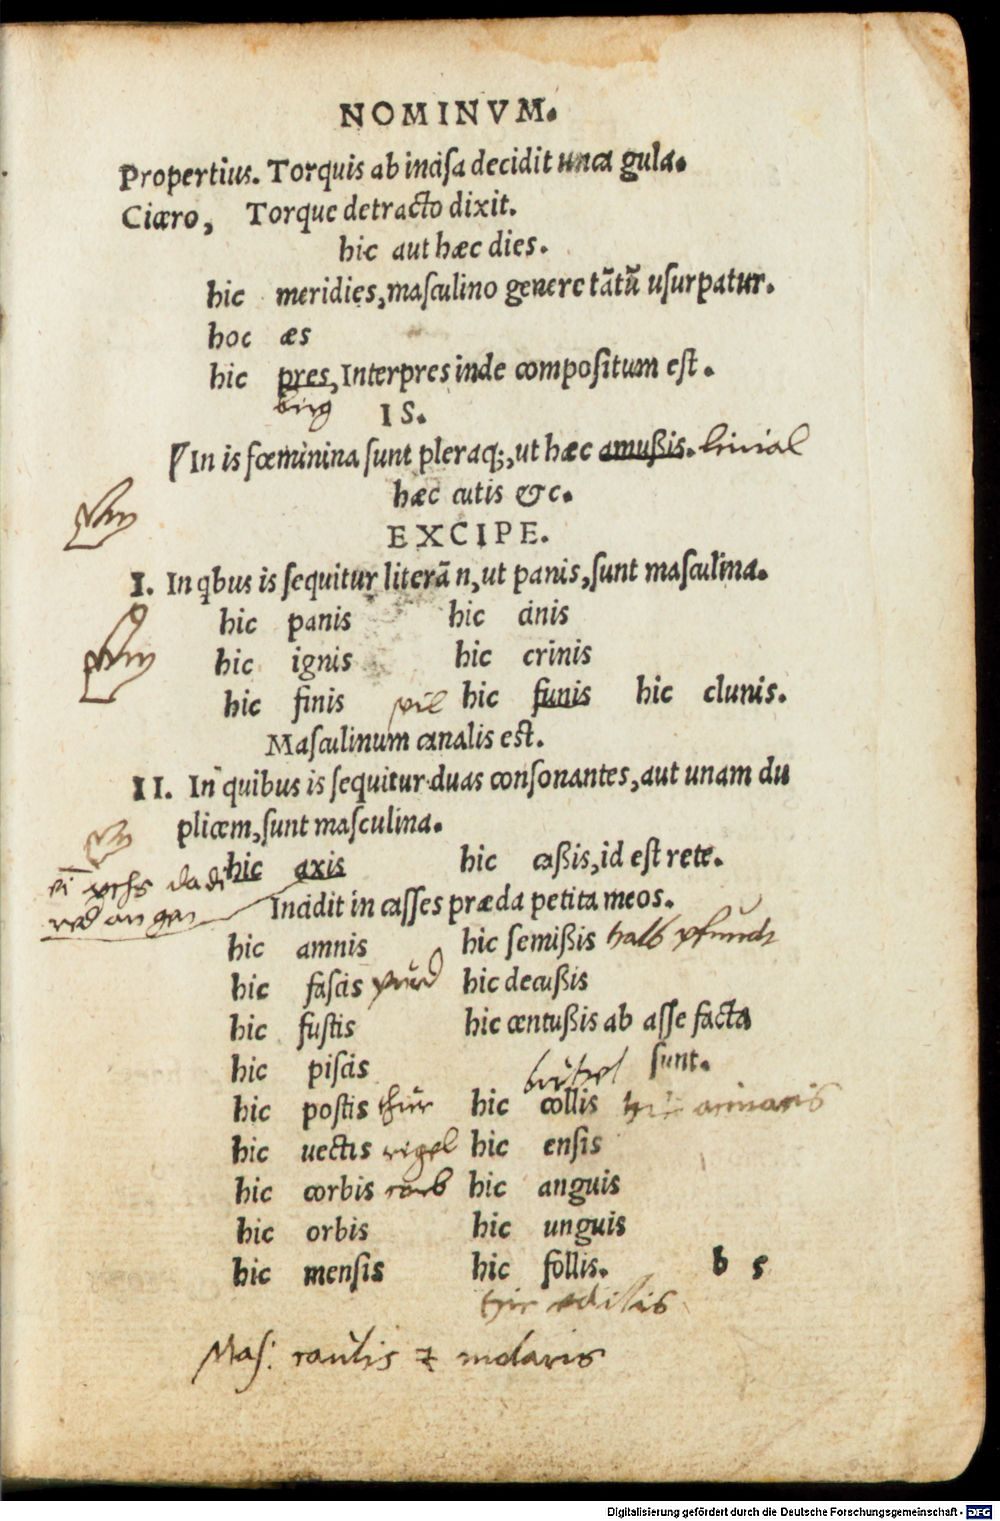 NOMINVM.
Propertius. Torquis ab incisa decidit unca gula.
Cicero, Torque detracto dixit.
hic aut hæc dies.
hic meridies, maſculino genere tãtũ uſurpatur.
hoc æs
hic pres, Interpres inde compoſitum eſt.
birg
IS.
In is fœminina ſunt pleraq;, ut hæc amußis. linial
hæc cutis &c.
EXCIPE.
I. In qbus is ſequitur literã n, ut panis, ſunt maſculina.
hic panis hic cinis
hic ignis hic crinis
hic finis ſeil hic funis hic clunis.
Maſculinum canalis eſt.
II. In quibus is ſequitur duas conſonantes, aut unam du
plicem, ſunt maſculina.
hic axis hic caßis, id eſt rete.
Incidit in caſſes præda petita meos.
hic amnis hic ſemißis halb pfundt
hic faſcis hic decußis
hic fuſtis hic centußis ab aſſe facta
hic piſcis ſunt.
hic poſtis thür hic collis
hic uectis rigel hic enſis
hic corbis corb hic anguis
hic orbis hic unguis
hic menſis hic follis. b 5
hic edilis
Maſ: caulis molaris
Digitalisierung gefördert durch die Deutsche Forschungsgemeinschaft - DFG